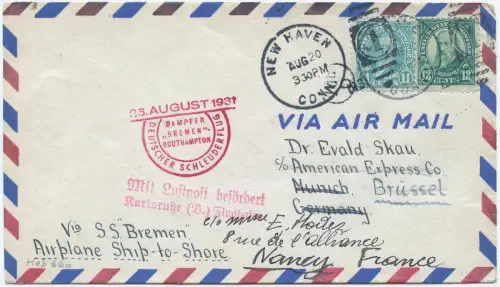 NEW HAVEN
AUG 20
3 30 PM
CONN.
11
13 13
26. AUGUST 1931
DAMPFER
"BREMEN"-
SOUTHAMPTON
DEUTSCHER SCHLEUDERFLUG
VIA AIR MAIL
Dr. Evald Skau,
c/o American Express Co.
Munich, Brüssel
Germany
Mit Luftpost befördert
Karlsruhe (B.) Flughafen
c/o Mme E.
8 rue de l'alliance
Nancy France
Via S.S "Bremen"
Airplane Ship-to-Shore